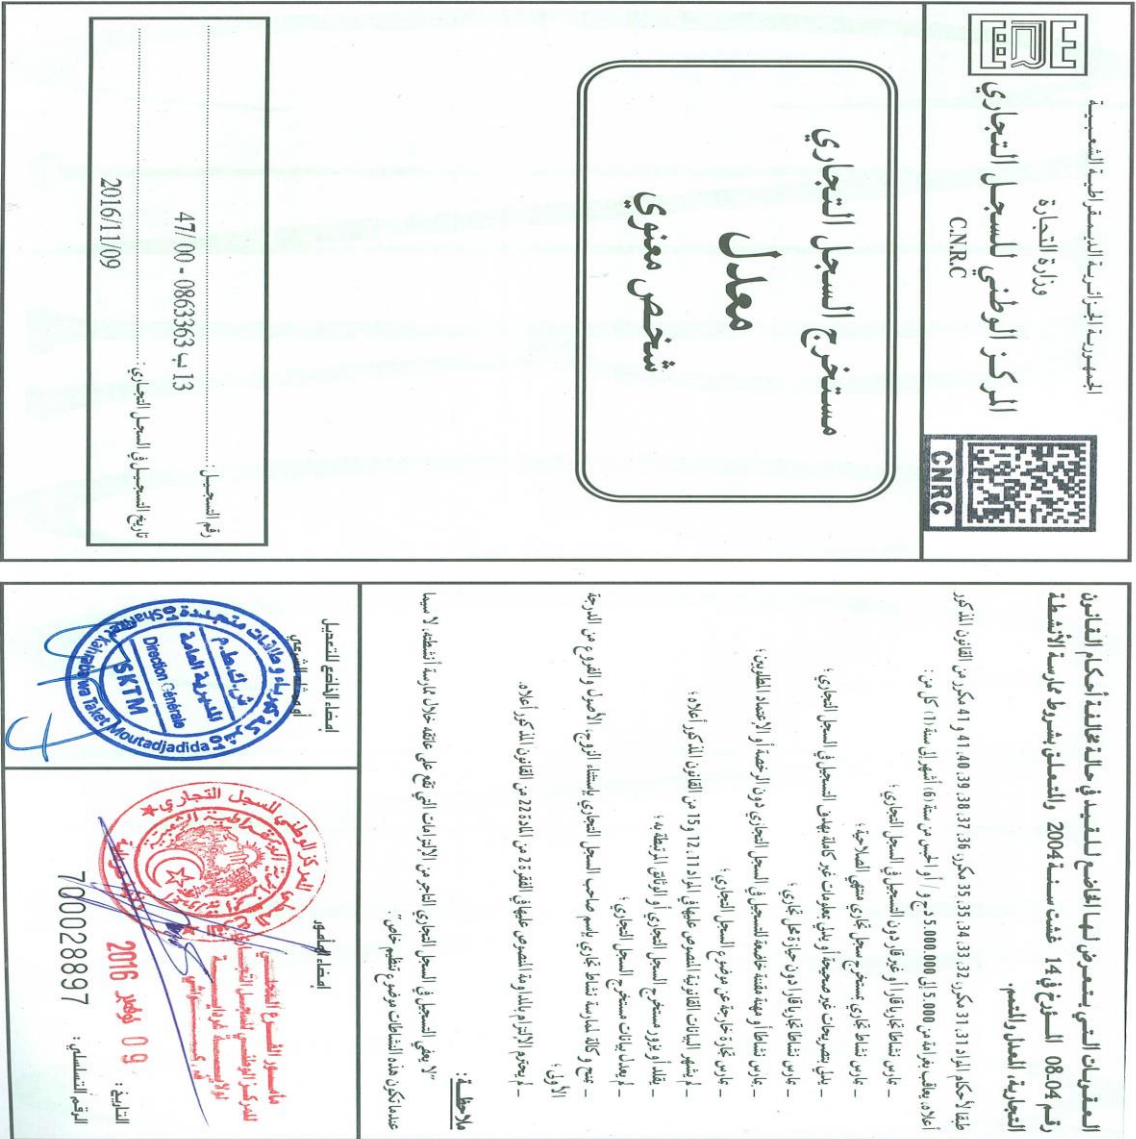 الجمهورية الجزائرية الديمقراطية الشعبية
وزارة التجارة
المركز الوطني للسجل التجاري
C.N.R.C
CNRC
مستخرج السجل التجاري
معدل
شخص معنوي
رقم التسجيل :
13 ب 0863363 - 47/00
تاريخ التسجيل في السجل التجاري :
2016/11/09
العقوبات التي يتعرض لها الخاضع للقيد في حالة مخالفة أحكام القانون
رقم 08.04 المؤرخ في 14 غشت سنة 2004 والمتعلق بشروط ممارسة الأنشطة
التجارية، المعدل والمتمم.
طبقا لأحكام المواد 31، 31 مكرر، 32، 33، 34، 35، 35 مكرر، 36، 37، 38، 39، 40، 41 و 41 مكرر من القانون المذكور
أعلاه، يعاقب بغرامة من 5.000 إلى 5.000.000 دج و / أو الحبس من ستة (6) أشهر إلى سنة (1) كل من :
– يمارس نشاطا تجاريا قارا أو غير قار دون التسجيل في السجل التجاري ؛
– يمارس نشاط تجاري بمستخرج سجل تجاري منتهي الصلاحية ؛
– يدلي بتصريحات غير صحيحة أو يدلي بمعلومات غير كاملة بهدف التسجيل في السجل التجاري ؛
– يمارس نشاطا تجاريا قارا دون حيازة محل تجاري ؛
– يمارس نشاطا أو مهنة مقننة خاضعة للتسجيل في السجل التجاري دون الرخصة أو الإعتماد المطلوبين ؛
– يمارس تجارة خارجة عن موضوع السجل التجاري ؛
– لم يشهر البيانات القانونية المنصوص عليها في المواد 11، 12 و 15 من القانون المذكور أعلاه ؛
– يقلد أو يزور مستخرج السجل التجاري أو الوثائق المرتبطة به ؛
– لم يعدل بيانات مستخرج السجل التجاري ؛
– يمنح وكالة لممارسة نشاط تجاري باسم صاحب السجل التجاري بإستثناء الزوج، الأصول والفروع من الدرجة
الأولى ؛
– لم يحترم الإلتزام بالمداومة المنصوص عليها في الفقرة 2 من المادة 22 من القانون المذكور أعلاه.
ملاحظة :
"لا يعفي التسجيل في السجل التجاري التاجر من الإلتزامات التي تقع على عاتقه خلال ممارسة أنشطته، لا سيما
عندما تكون هذه النشاطات موضوع تنظيم خاص".
إمضاء الخاضع للتعديل
أو ممثله الشرعي
شركة كهرباء و طاقات متجددة
ش.ك.ط.م
المديرية العامة
Direction Générale
SKTM
01 Sharket Kahraba wa Taket Moutadjadida 01
إمضاء المأمور
المركز الوطني للسجل التجاري
مأمور الفرع المحلي
للمركز الوطني للسجل التجاري
لولاية غرداية
التاريخ :
09 نوفمبر 2016
الرقم التسلسلي :
7000028897